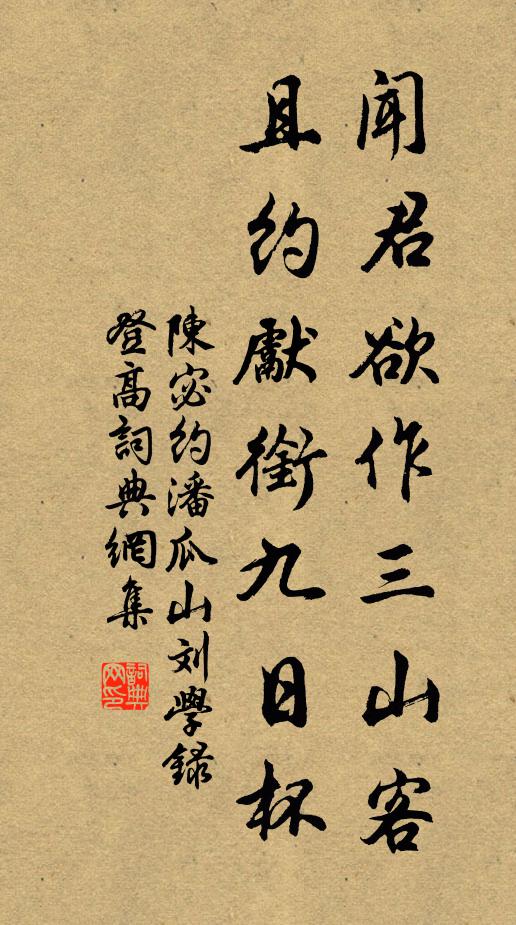 闻君欲作三山客
且约獻銜九日杯
陳宓约潘瓜山刘學録
登高詞典網集
詞典
网印